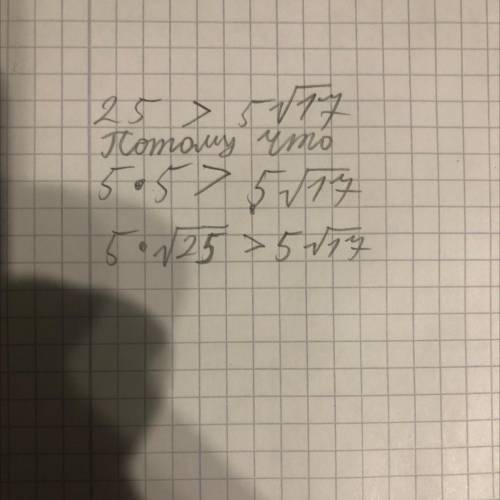 25 > 5√17
Потому что
5·5 > 5√17
5·√25 > 5√17